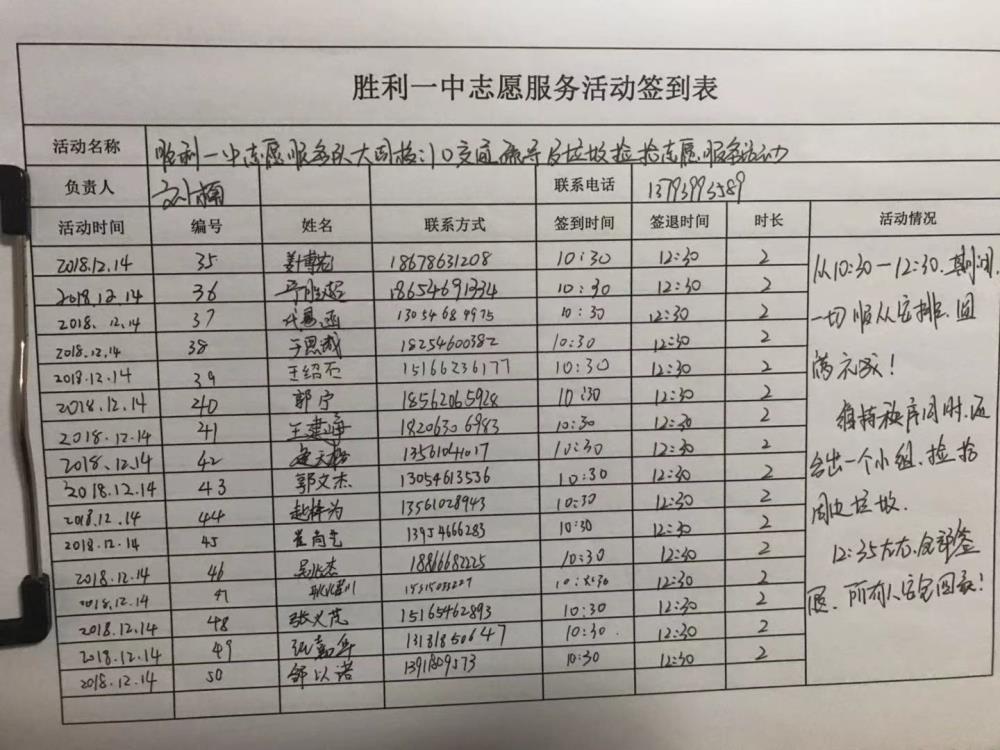 胜利一中志愿服务活动签到表
活动名称 胜利一中志愿服务队大团校:10 及垃圾捡拾志愿服务活动
负责人 刘 联系电话 13793993589
活动时间 编号 姓名 联系方式 签到时间 签退时间 时长 活动情况
2018.12.14 35 18678631208 10:30 12:30 2
2018.12.14 36 18654691334 10:30 12:30 2
2018.12.14 37 代易函 13054684975 10:30 12:30 2
2018.12.14 38 于思成 18254600382 10:30 12:30 2
2018.12.14 39 王绍丕 15166236177 10:30 12:30 2
2018.12.14 40 郭宁 18562065928 10:30 12:30 2
2018.12.14 41 王建海 18206306983 10:30 12:30 2
2018.12.14 42 13561041017 10:30 12:30 2
2018.12.14 43 郭文杰 13054613536 10:30 12:30 2
2018.12.14 44 13561028943 10:30 12:30 2
2018.12.14 45 13954666283 10:30 12:30 2
2018.12.14 46 吴兆杰 18816682225 10:30 12:30 2
2018.12.14 47 12:30 2
2018.12.14 48 张义茂 15165462893 10:30 12:30 2
2018.12.14 49 张嘉华 13181850647 10:30 12:30 2
2018.12.14 50 邹以诺 1391809573 10:30 12:30 2
从10:30-12:30.期间
一切服从安排.圆
满完成!
维持秩序同时.还
分出一个小组.捡拾
周边垃圾.
12:35左右.全部签
退.所有人安全回家!